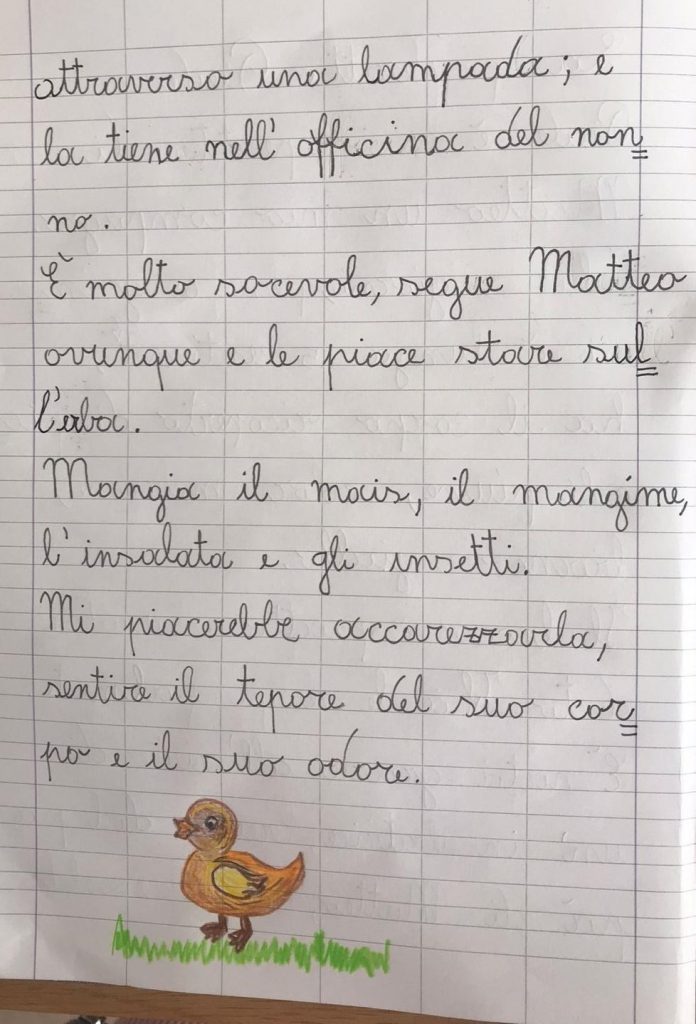 attraverso una lampada; e
la tiene nell'officina del non=
no.
È molto socevole, segue Matteo
ovunque e le piace stare sul=
l'erba.
Mangia il mais, il mangime,
l'insalata e gli insetti.
Mi piacerebbe accarezzarla,
sentire il tepore del suo cor=
po e il suo odore.